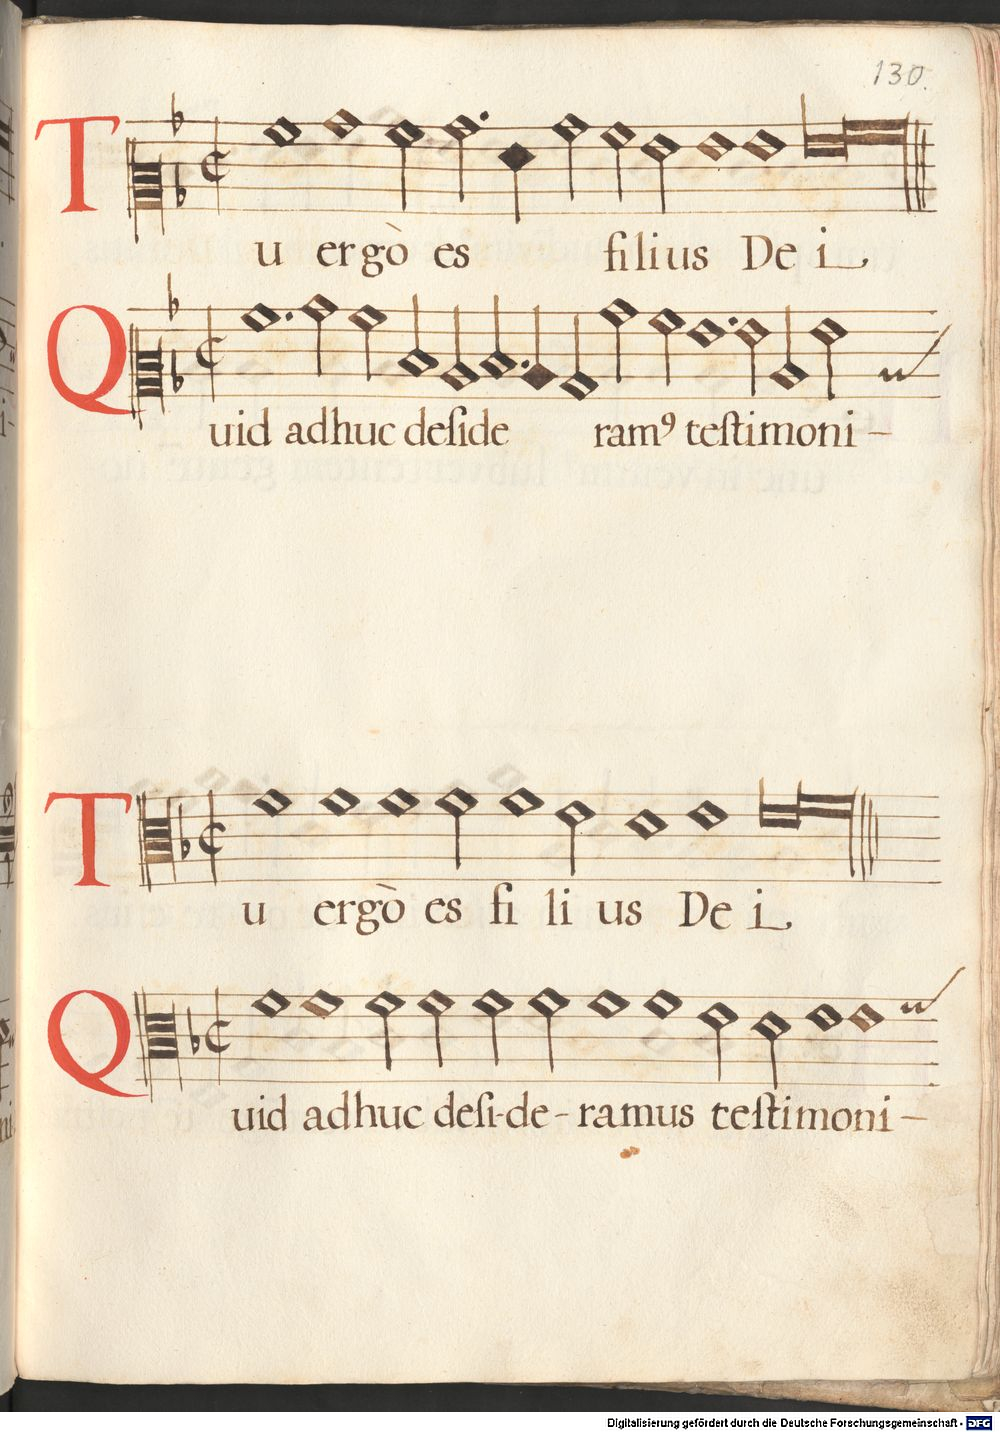 130.
Tu ergò es filius Dei
Quid adhuc deside ramꝰ testimoni-
Tu ergò es fi li us Dei
Quid adhuc desi-de-ramus testimoni-
Digitalisierung gefördert durch die Deutsche Forschungsgemeinschaft - DFG